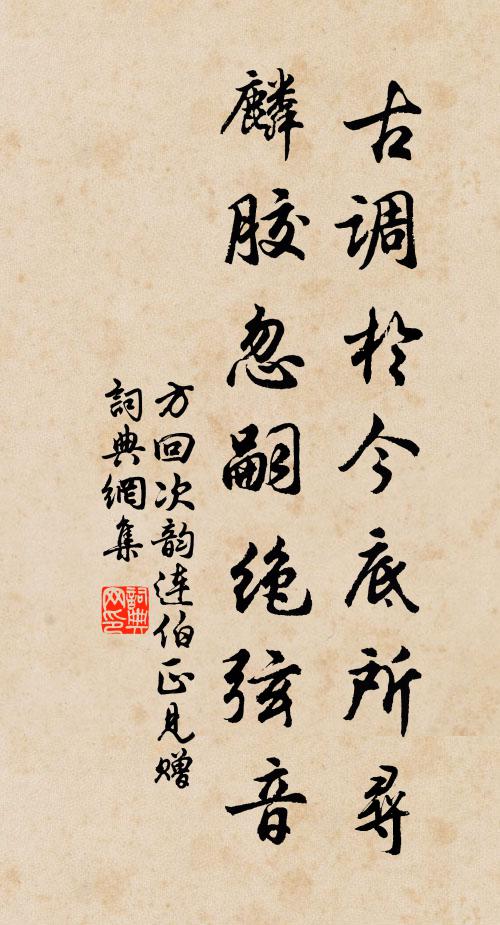 古调於今底所尋
麟胶忽嗣绝弦音
方回次韵连伯正见赠
詞典網集
詞典网印